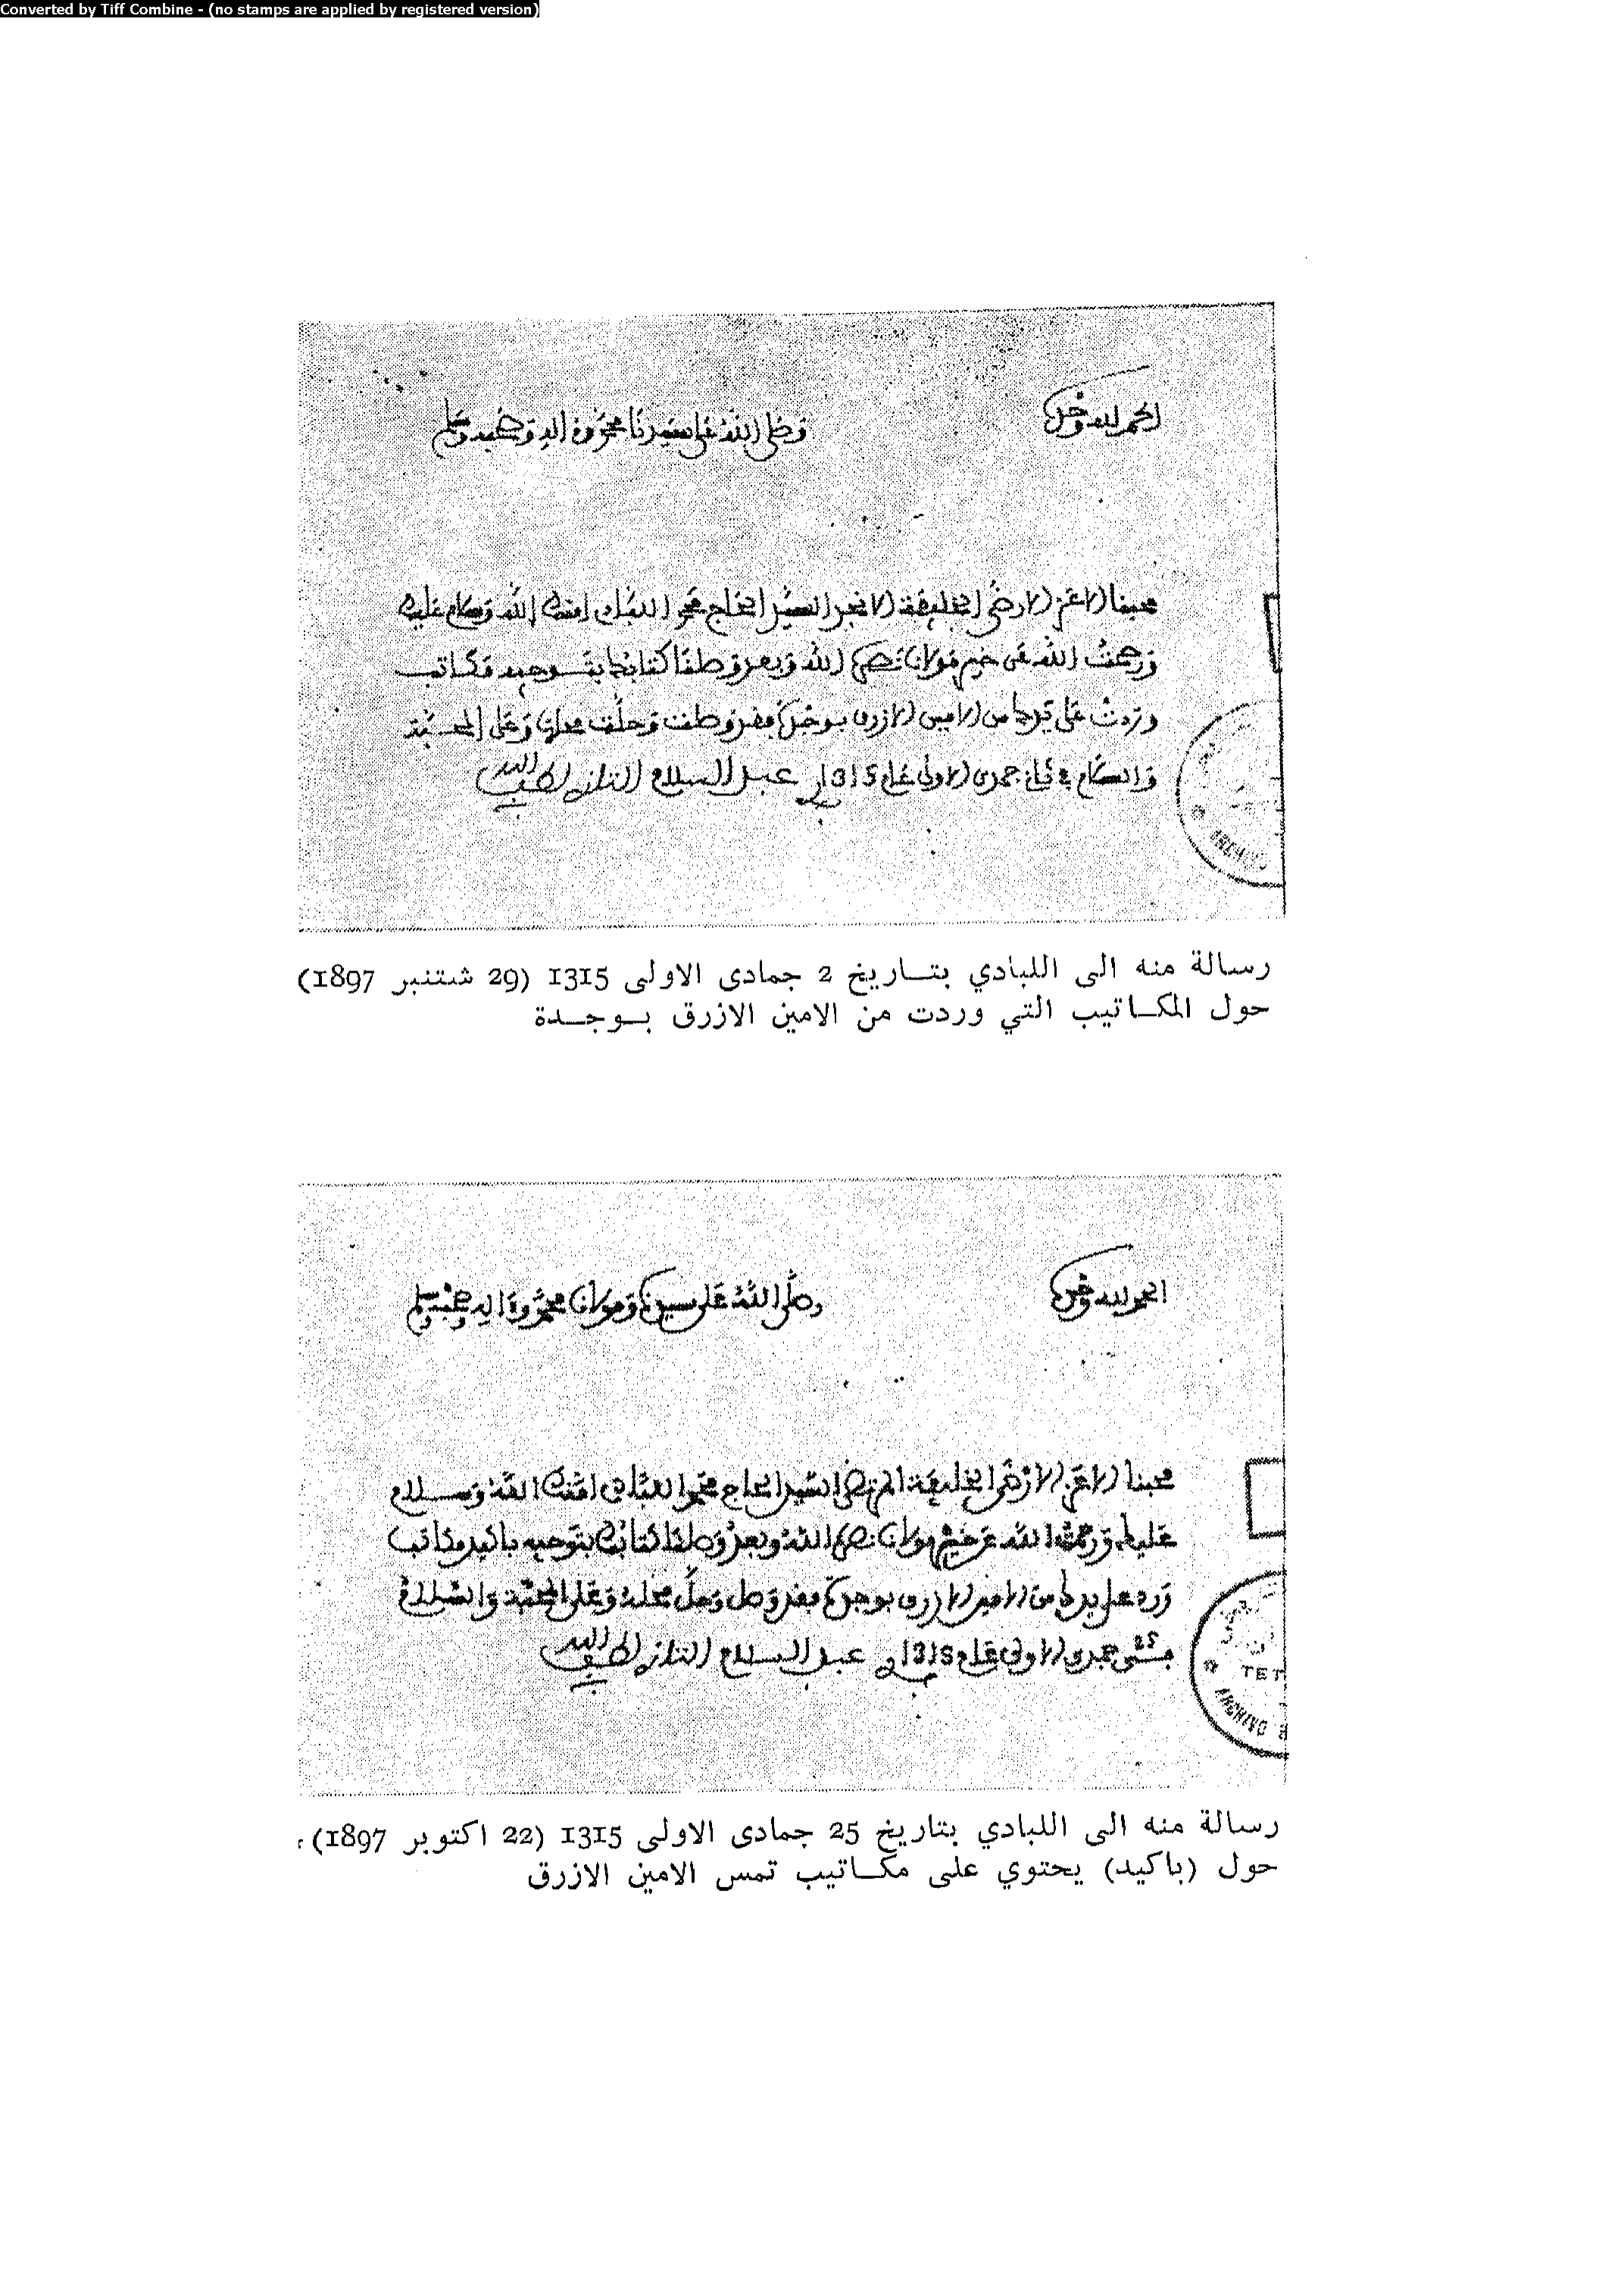 Converted by Tiff Combine - (no stamps are applied by registered version)
الحمد لله وحده
وصلى الله على سيدنا محمد وءاله وصحبه وسلم
محبنا الاعز الارضى الخليفة الانجد السيد الحاج محمد اللبادي امنك الله وسلام عليك
ورحمت الله عن خير مولانا نصره الله وبعد وصلنا كتابك بتوجيه مكاتب
وردت على يدك من الامين الازرق بوجدة فقد وصلت وحلت محلها وعلى المحبة
والسلام في 2 جمدى الاولى عام 1315 عبد السلام التازي لطف الله به
ARCHIVO
رسالة منه الى اللبادي بتـاريخ 2 جمادى الاولى 1315 (29 شتنبر 1897)
حول المكـاتيب التي وردت من الامين الازرق بـوجـدة
الحمد لله وحده
وصلى الله على سيدنا ومولانا محمد وءاله وصحبه وسلم
محبنا الاعز الارضى الخليفة المرتضى السيد الحاج محمد اللبادي امنك الله وسلام
عليك ورحمت الله عن خير مولانا نصره الله وبعد وصلنا كتابك بتوجيه باكيد مكاتب
ورد على يدك من الامين الازرق بوجدة فقد وصل وحل محله وعلى المحبة والسلام
25 جمدى الاولى عام 1315 عبد السلام التازي لطف الله به
TET
ARCHIVO
رسالة منه الى اللبادي بتاريخ 25 جمادى الاولى 1315 (22 اكتوبر 1897)،
حول (باكيد) يحتوي على مكـاتيب تمس الامين الازرق